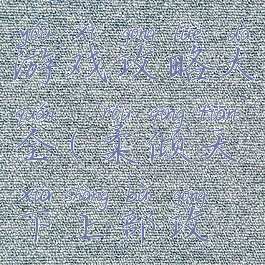 yóu xì gōng lüè dà
游戏攻略大
quán róu qīng tiān
全(柔倾天
xià shàng bù gōng
下上部攻